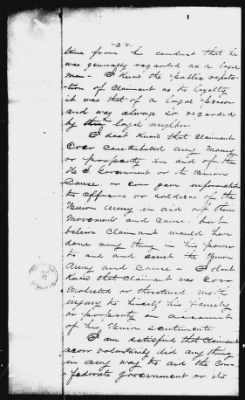 -2-
time from his conduct that he
was generally regarded as a loyal
man - I knew the public reputa-
tion of claimant as to loyalty
it was that of a loyal person
and was always so regarded
by his loyal neighbors
I don't know that claimant
ever contributed any money
or property in aid of the
U.S. Government or its Union
Cause, or ever gave information
to officers or soldiers of the
Union Army in aid of their
Movements and cause, but
believe claimant would have
done any thing in his power
to aid and assist the Union
Army and Cause - I don't
know that claimant was ever
Molested or threatened with
injury to himself his Family
or property on account
of his Union sentiments.
I am satisfied that claimant
never voluntarily did any thing
in any way to aid the Con-
federate government or its